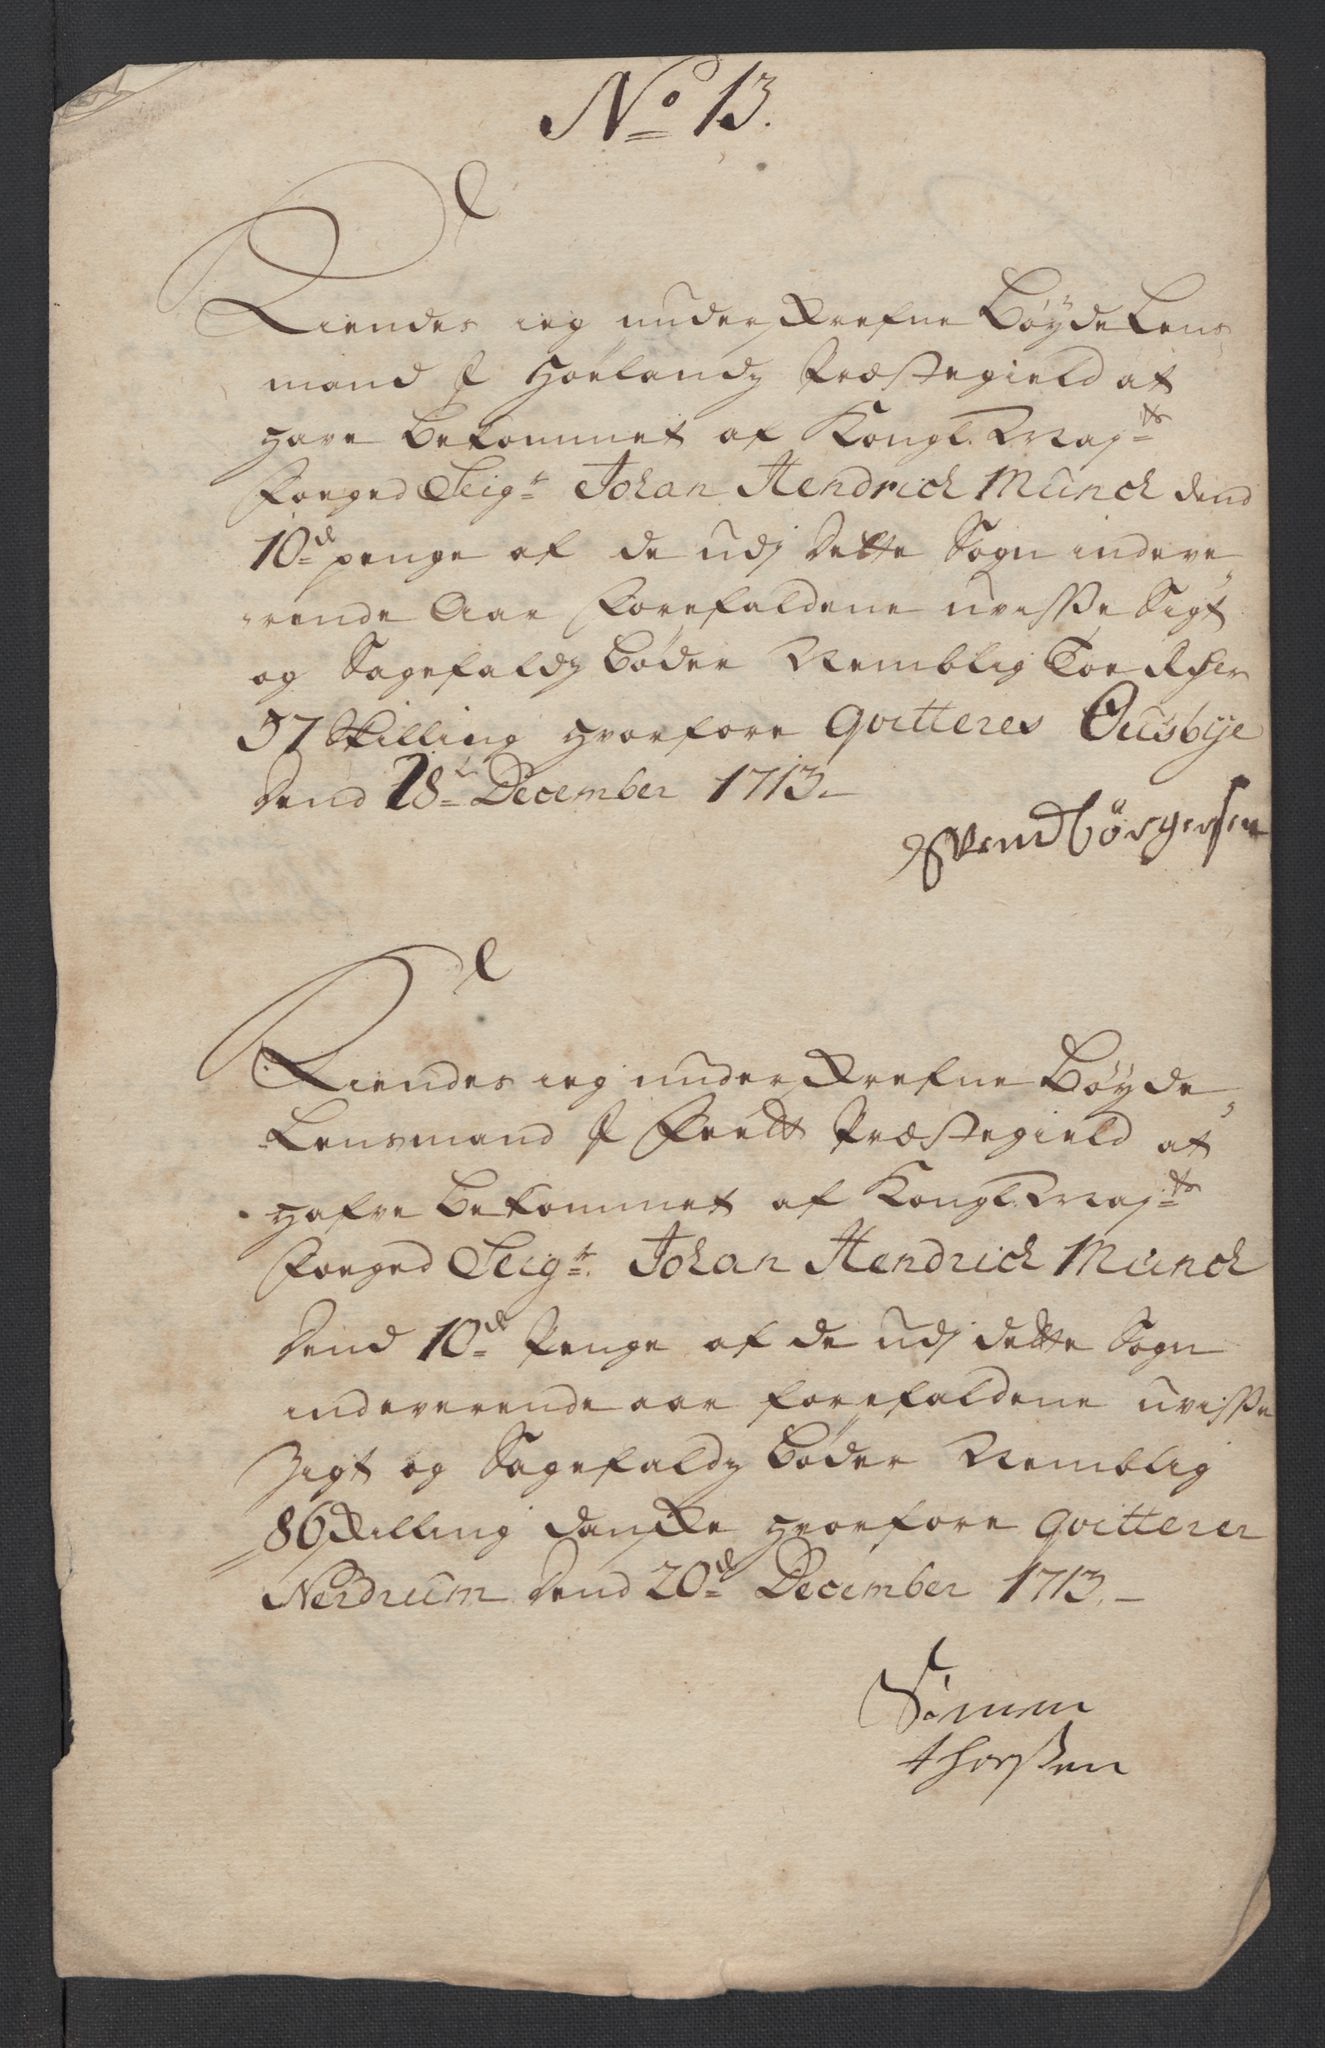 No 13.
Kiendes ieg underskrefne Bøyde Lens,
mand I Hørlandz Præstegield at
have bekommet af Kongl. Mayts
Foeged Seigr Johan Hendrich Münch dend
10de penge af de udj dette Sogn indeve,
rende Aar forefaldene uvisse Sigt
og Sagefaldz bøder Nemblig Toe Rixdlr
37 skilling hvorfore qvitteres Ousbye
dend 28de December 1713.
Svend børgersen
Kiendes ieg underskrefne Bøyde,
Lensmand I Feedt Præstegield at
hafve bekommet af Kongl. Mayts
Foeged Seigr. Johan Hendrich Münch
dend 10de Penge af de udj dette Sogn
indeverende aar forefaldene uvisse
Sigt og Sagefaldz bøder Nemblig
86 skilling danske hvorfore qvitterer
Nerdrum dend 20de December 1713.
Simen
thorsen